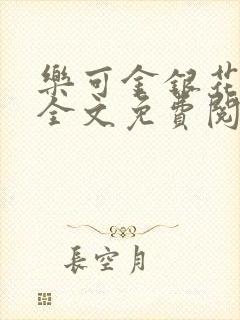 樂可金銀花
全文免費閱
長空月